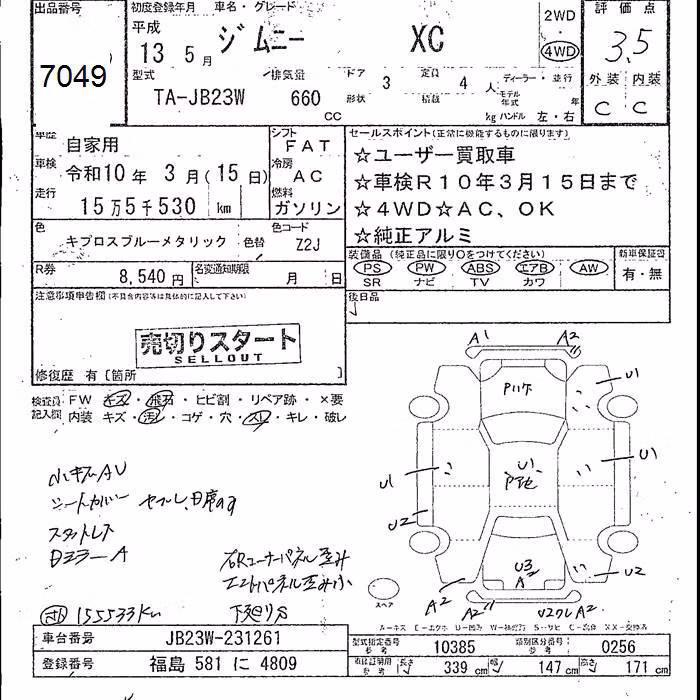 出品番号 初度登録年月 車名・グレード 2WD 評価点
平成 ジムニー XC 4WD 3.5
7049 13 5月
型式 排気量 ドア 3 定員 4人 ディーラー・並行 外装 内装
TA-JB23W 660 CC 形状 積載 kg モデル年式 年 ハンドル 左・右 C C
車歴 自家用 シフト FAT
車検 令和10年 3月(15日) 冷房 AC
走行 15万5千530 km 燃料 ガソリン
セールスポイント(正常に機能するものに限ります)
☆ユーザー買取車
☆車検R10年3月15日まで
☆4WD☆AC、OK
☆純正アルミ
色 キプロスブルーメタリック 色替 色コード Z2J
装備品 (純正品に限り○をつけてください) 新車保証書
PS PW ABS エアB AW 有・無
SR ナビ TV カワ
R券 8,540円 名変通知期限 月 日
後日品
注意事項申告欄(不具合内容等は具体的に記入して下さい)
売切りスタート
SELLOUT
修復歴 有〔箇所 〕
検査員記入欄 FW キズ・飛石・ヒビ割・リペア跡・×要
内装 キズ・汚レ・コゲ・穴・スレ・キレ・破レ
A1 A2
U1
U1 U1 U1
U2
U3
A2
U2
A2 A2 A2
スペア
小キズAU
シートカバー
スタットレス
155533Km 下廻りサビ
車台番号 JB23W-231261
登録番号 福島 581 に 4809
型式指定番号 参考 10385 類別区分番号 参考 0256
車検証明用 参考 長さ 339 cm 幅 147 cm 高さ 171 cm